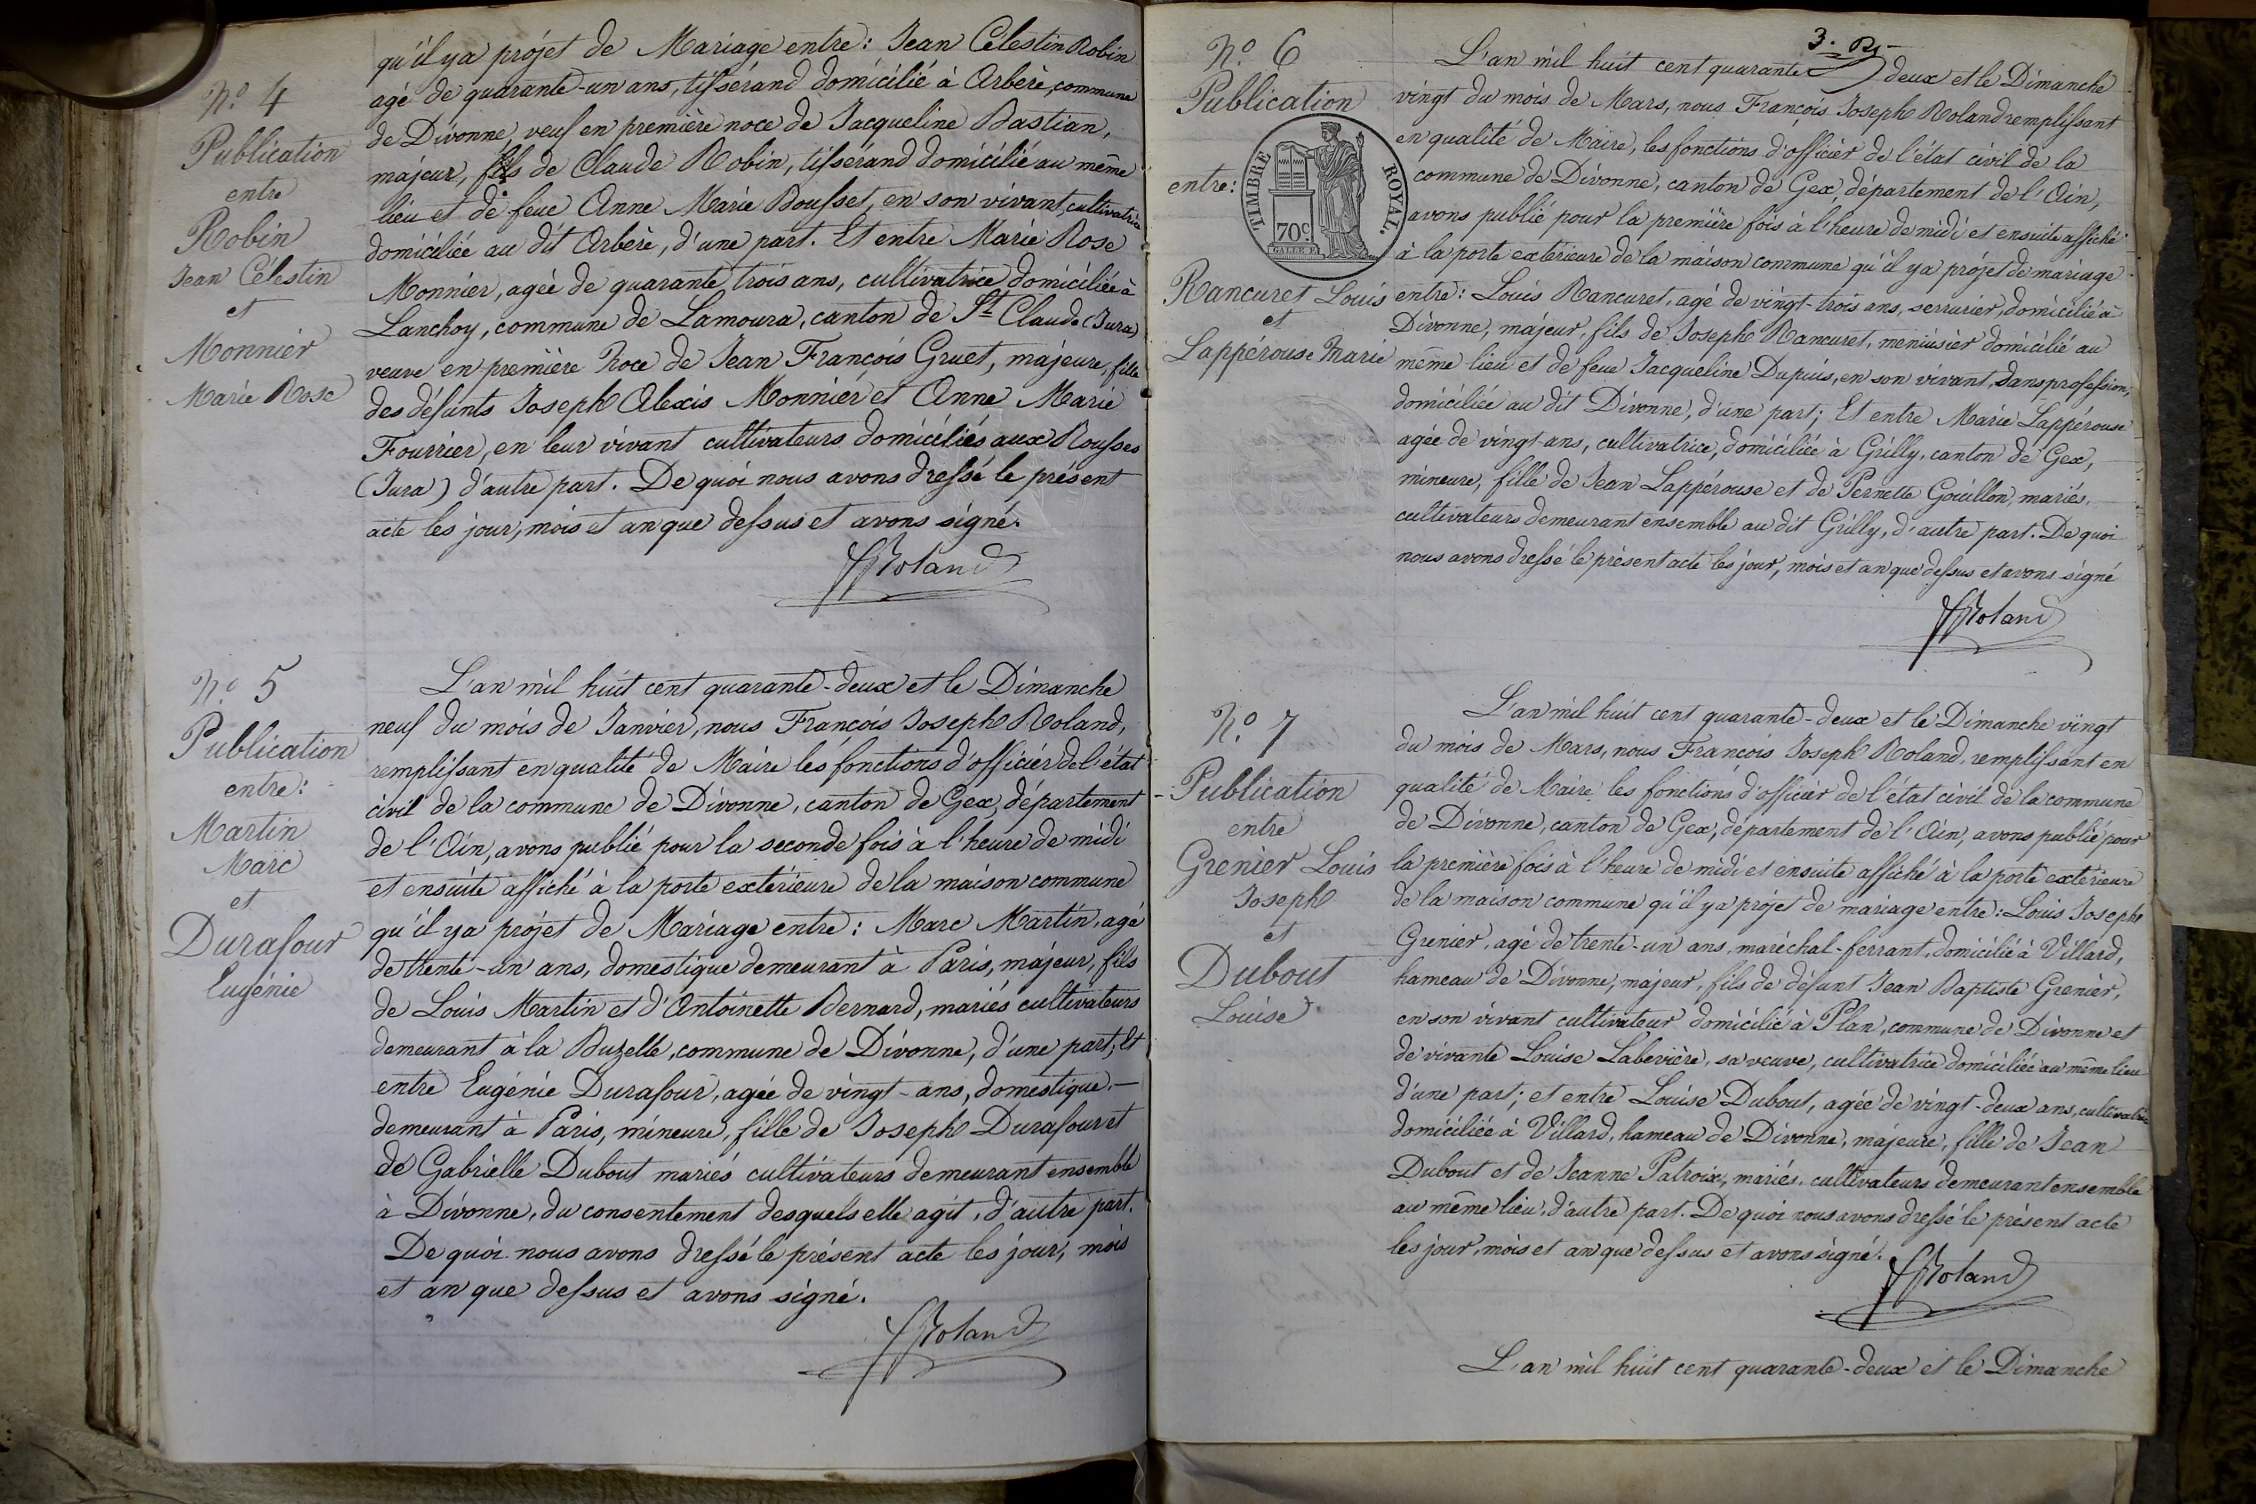 N.º 4
Publication
entre
Robin
Jean Célestin
et
Monnier
Marie Rose
qu'il ya projet de Mariage entre : Jean Célestin Robin
agé de quarante-un ans, tissérand domicilié à Arbère, commune
de Divonne, veuf en première noce de Jacqueline Bastian,
majeur, fils de Claude Robin, tissérand domicilié au même
lieu et de feue Anne Marie Bousset, en son vivant, cultivatrice
domiciliée au dit Arbère, d'une part. Et entre Marie Rose
Monnier, agée de quarante trois ans, cultivatrice domiciliée à
Lanchoy, commune de Lamoura, canton de St Claude (Jura)
veuve en première noce de Jean François Gruet, majeure, fille
des défunts Joseph Alexis Monnier et Anne Marie
Fourrier, en leur vivant cultivateurs domiciliés aux Rousses
(Jura) d'autre part. De quoi nous avons dressé le présent
acte les jour, mois et an que dessus et avons signé.
Roland
N.º 5
Publication
entre :
Martin
Marc
et
Durafour
Eugénie
L'an mil huit cent quarante-deux et le Dimanche
neuf du mois de Janvier, nous François Joseph Roland,
remplissant en qualité de Maire les fonctions d'officier de l'état
civil de la commune de Divonne, canton de Gex, département
de l'Ain, avons publié pour la seconde fois à l'heure de midi
et ensuite affiché à la porte extérieure de la maison commune
qu'il ya projet de Mariage entre : Marc Martin, agé
de trente-un ans, domestique demeurant à Paris, majeur, fils
de Louis Martin et d'Antoinette Bernard, mariés cultivateurs
demeurant à la Buzelle, commune de Divonne, d'une part ; Et
entre Eugénie Durafour, agée de vingt-ans, domestique. —
demeurant à Paris, mineure, fille de Joseph Durafour et
de Gabrielle Dubout mariés cultivateurs demeurant ensemble
à Divonne, du consentement desquels elle agit, d'autre part.
De quoi nous avons dressé le présent acte les jour, mois
et an que dessus et avons signé.
Roland
3.
N.º 6
Publication
entre :
TIMBRE ROYAL.
70 c.
Rancuret Louis
et
Lappérouse Marie
L'an mil huit cent quarante deux et le Dimanche
vingt du mois de Mars, nous François Joseph Roland remplissant
en qualité de Maire, les fonctions d'officier de l'état civil de la
commune de Divonne, canton de Gex, département de l'Ain,
avons publié pour la première fois à l'heure de midi et ensuite affiché
à la porte extérieure de la maison commune qu'il ya projet de mariage
entre : Louis Rancuret, agé de vingt-trois ans, serrurier, domicilié à
Divonne, majeur, fils de Joseph Rancuret, menuisier domicilié au
même lieu et de feue Jacqueline Dupuis, en son vivant, sans profession,
domiciliée au dit Divonne, d'une part ; Et entre Marie Lappérouse
agée de vingt ans, cultivatrice, domiciliée à Grilly, canton de Gex,
mineure, fille de Jean Lappérouse et de Pernette Gouillon, mariés,
cultivateurs demeurant ensemble au dit Grilly, d'autre part. De quoi
nous avons dressé le présent acte les jour, mois et an que dessus et avons signé
Roland
N.º 7
Publication
entre
Grenier Louis
Joseph
et
Dubout
Louise
L'an mil huit cent quarante-deux et le Dimanche vingt
du mois de Mars, nous François Joseph Roland, remplissant en
qualité de Maire les fonctions d'officier de l'état civil de la commune
de Divonne, canton de Gex, département de l'Ain, avons publié pour
la première fois à l'heure de midi et ensuite affiché à la porte extérieure
de la maison commune qu'il ya projet de mariage entre : Louis Joseph
Grenier, agé de trente-un ans, maréchal-ferrant, domicilié à Villard,
hameau de Divonne, majeur, fils de défunt Jean Baptiste Grenier,
en son vivant cultivateur domicilié à Plan, commune de Divonne et
de vivante Louise Labevière, sa veuve, cultivatrice domiciliée au même lieu
d'une part ; et entre Louise Dubout, agée de vingt-deux ans, cultivatrice
domiciliée à Villard, hameau de Divonne, majeure, fille de Jean
Dubout et de Jeanne Patroix, mariés, cultivateurs demeurant ensemble
au même lieu, d'autre part. De quoi nous avons dressé le présent acte
les jour, mois et an que dessus et avons signé.
Roland
L'an mil huit cent quarante-deux et le Dimanche